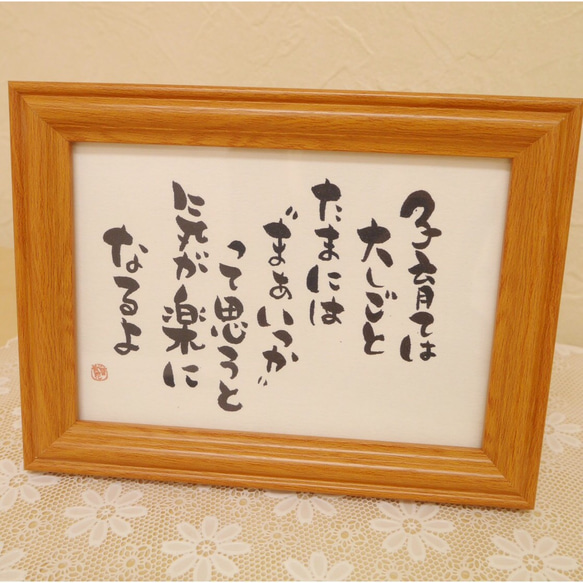 子育ては
大しごと
たまには
“まぁいっか”
って思うと
気が楽に
なるよ